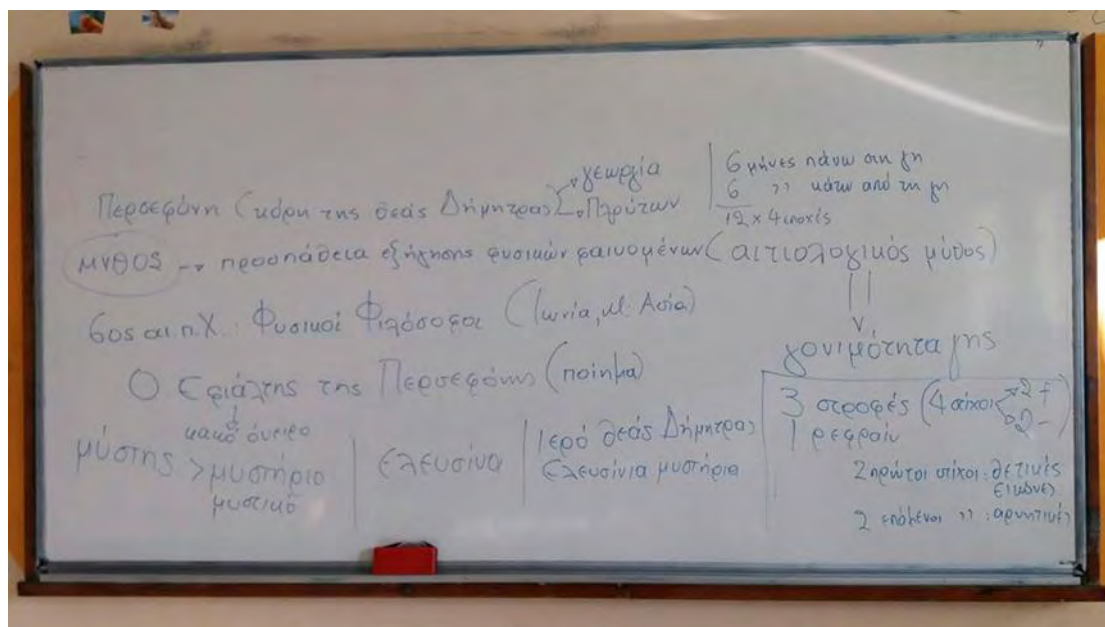 Περσεφόνη (κόρη της θεάς Δήμητρας)
γεωργία
Πλούτων
6 μήνες πάνω στη γη
6 ,, κάτω από τη γη
12 x 4 εποχές
ΜΥΘΟΣ → προσπάθεια εξήγησης φυσικών φαινομένων (αιτιολογικός μύθος)
γονιμότητα γης
6ος αι. π.Χ.: Φυσικοί Φιλόσοφοι (Ιωνία, Μ. Ασία)
Ο Εφιάλτης της Περσεφόνης (ποίημα)
κακό όνειρο
μύστης > μυστήριο
μυστικό
Ελευσίνα
Ιερό θεάς Δήμητρας
Ελευσίνια μυστήρια
3 στροφές (4 στίχοι 2+
2-
1 ρεφραίν
2 πρώτοι στίχοι: θετικές
εικόνες
2 επόμενοι ,, : αρνητικές